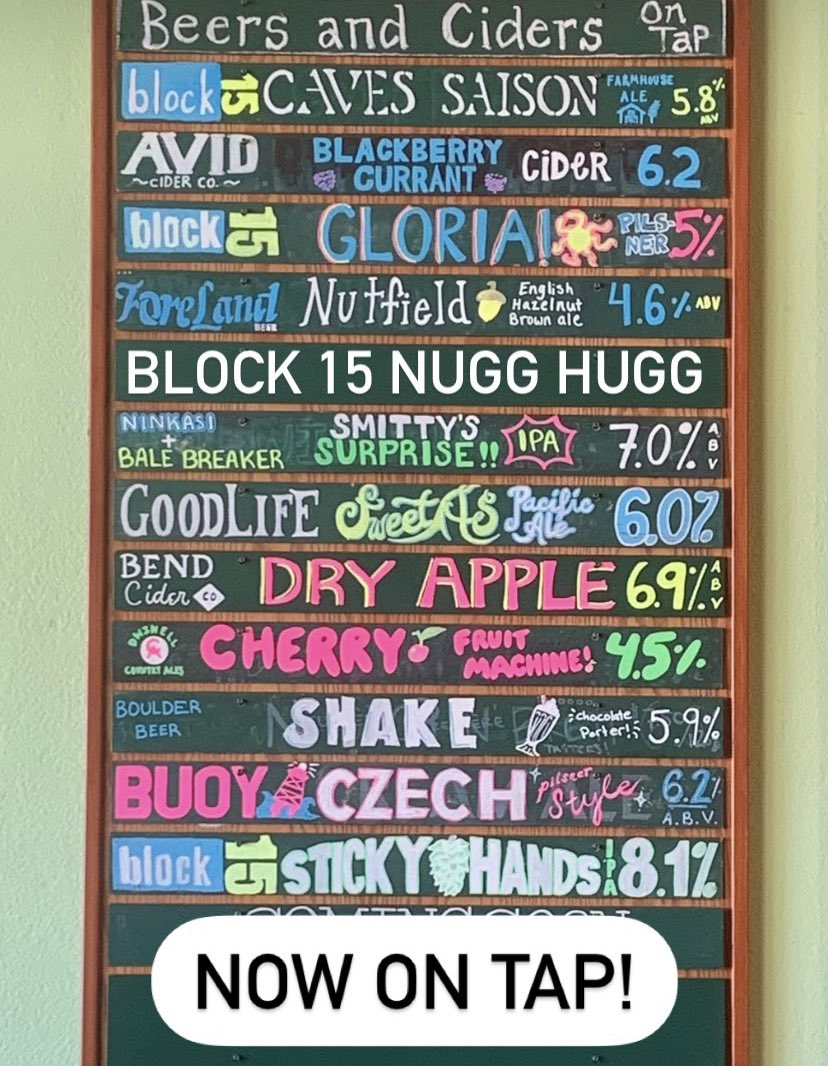 Beers and Ciders On Tap
block 15 CAVES SAISON FARMHOUSE ALE 5.8% ABV
AVID ~CIDER CO.~ BLACKBERRY CURRANT CiDeR 6.2
block 15 GLORIA! PILS-NER 5%
ForeLand BEER Nutfield English Hazelnut Brown ale 4.6% ABV
BLOCK 15 NUGG HUGG
NINKASI + BALE BREAKER SMITTY'S SURPRISE!! IPA 7.0% ABV
GOODLIFE SweetAs Pacific Ale 6.0%
BEND Cider CO DRY APPLE 6.9% ABV
DWINELL COUNTRY ALES CHERRY FRUIT MACHINE! 4.5%
BOULDER BEER SHAKE chocolate Porter! 5.9%
BUOY CZECH pilsner Style 6.2% A.B.V.
block 15 STICKY HANDS IPA 8.1%
COMING SOON
NOW ON TAP!